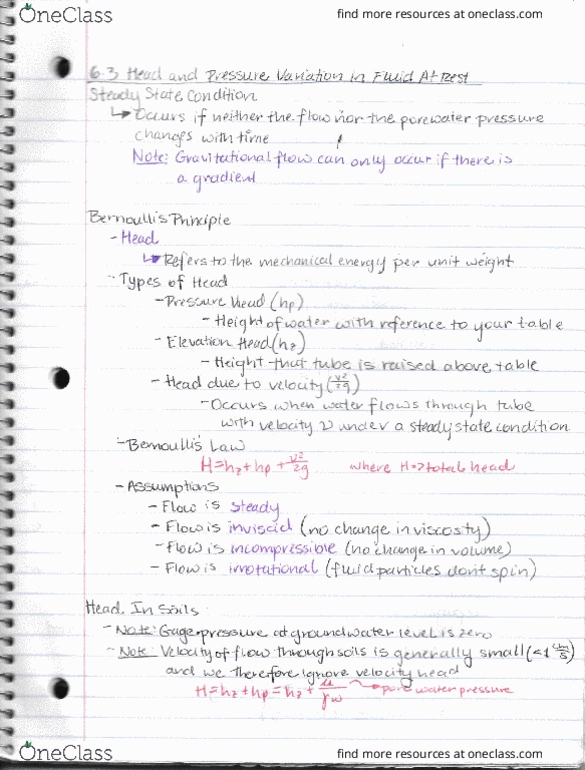 OneClass
find more resources at oneclass.com
6.3 Head and Pressure Variation in Fluid At Rest
Steady State Condition
↳ Occurs if neither the flow nor the porewater pressure
changes with time
Note: Gravitational flow can only occur if there is
a gradient
Bernoulli's Principle
- Head
↳ Refers to the mechanical energy per unit weight
- Types of Head
- Pressure Head (hp)
- Height of water with reference to your table
- Elevation Head (hz)
- Height that tube is raised above table
- Head due to velocity (v²/2g)
- Occurs when water flows through tube
with velocity v under a steady state condition
- Bernoulli's Law
H = hz + hp + v²/2g where H => total head
- Assumptions
- Flow is steady
- Flow is inviscid (no change in viscosity)
- Flow is incompressible (no change in volume)
- Flow is irrotational (fluid particles dont spin)
Head In Soils
- Note: Gage pressure at groundwater level is zero
- Note: Velocity of flow through soils is generally small (<1 cm/s)
and we therefore ignore velocity head
H = hz + hp = hz + u/γw → pore water pressure
OneClass
find more resources at oneclass.com